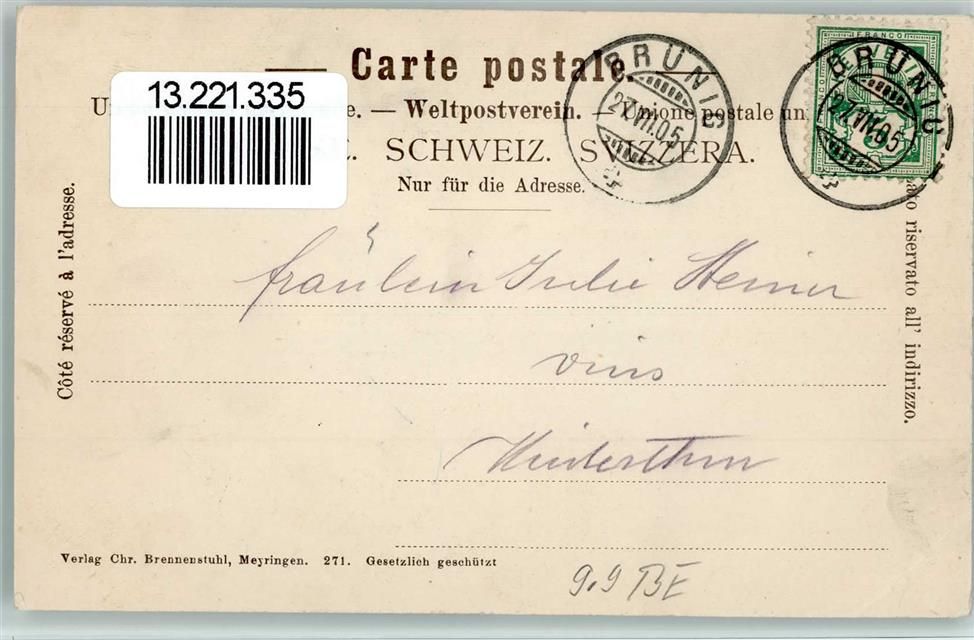 13.221.335
Carte postale.
e. — Weltpostverein. — Unione postale un
SCHWEIZ. SVIZZERA.
Nur für die Adresse.
BRÜNIG
27.VII.05
BRÜNIG
27.VII.05
FRANCO
Côté réservé à l'adresse.
ato riservato all' indirizzo.
Fräulein Julie Steiner
Winterthur
Verlag Chr. Brennenstuhl, Meyringen. 271. Gesetzlich geschützt
9.9 BE